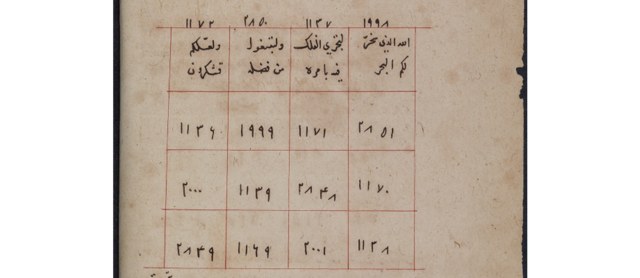 ١٩٩٨ ١١٣٧ ٢٨٥٠ ١١٧٢
الله الذي سخر لتجري الفلك ولتبتغوا ولعلكم
لكم البحر فيه بامره من فضله تشكرون
٢٨٥١ ١١٧١ ١٩٩٩ ١١٣٦
١١٧٠ ٢٨۴٨ ١١٣٩ ٢٠٠٠
١١٣٨ ٢٠٠١ ١١٦٩ ٢٨۴٩